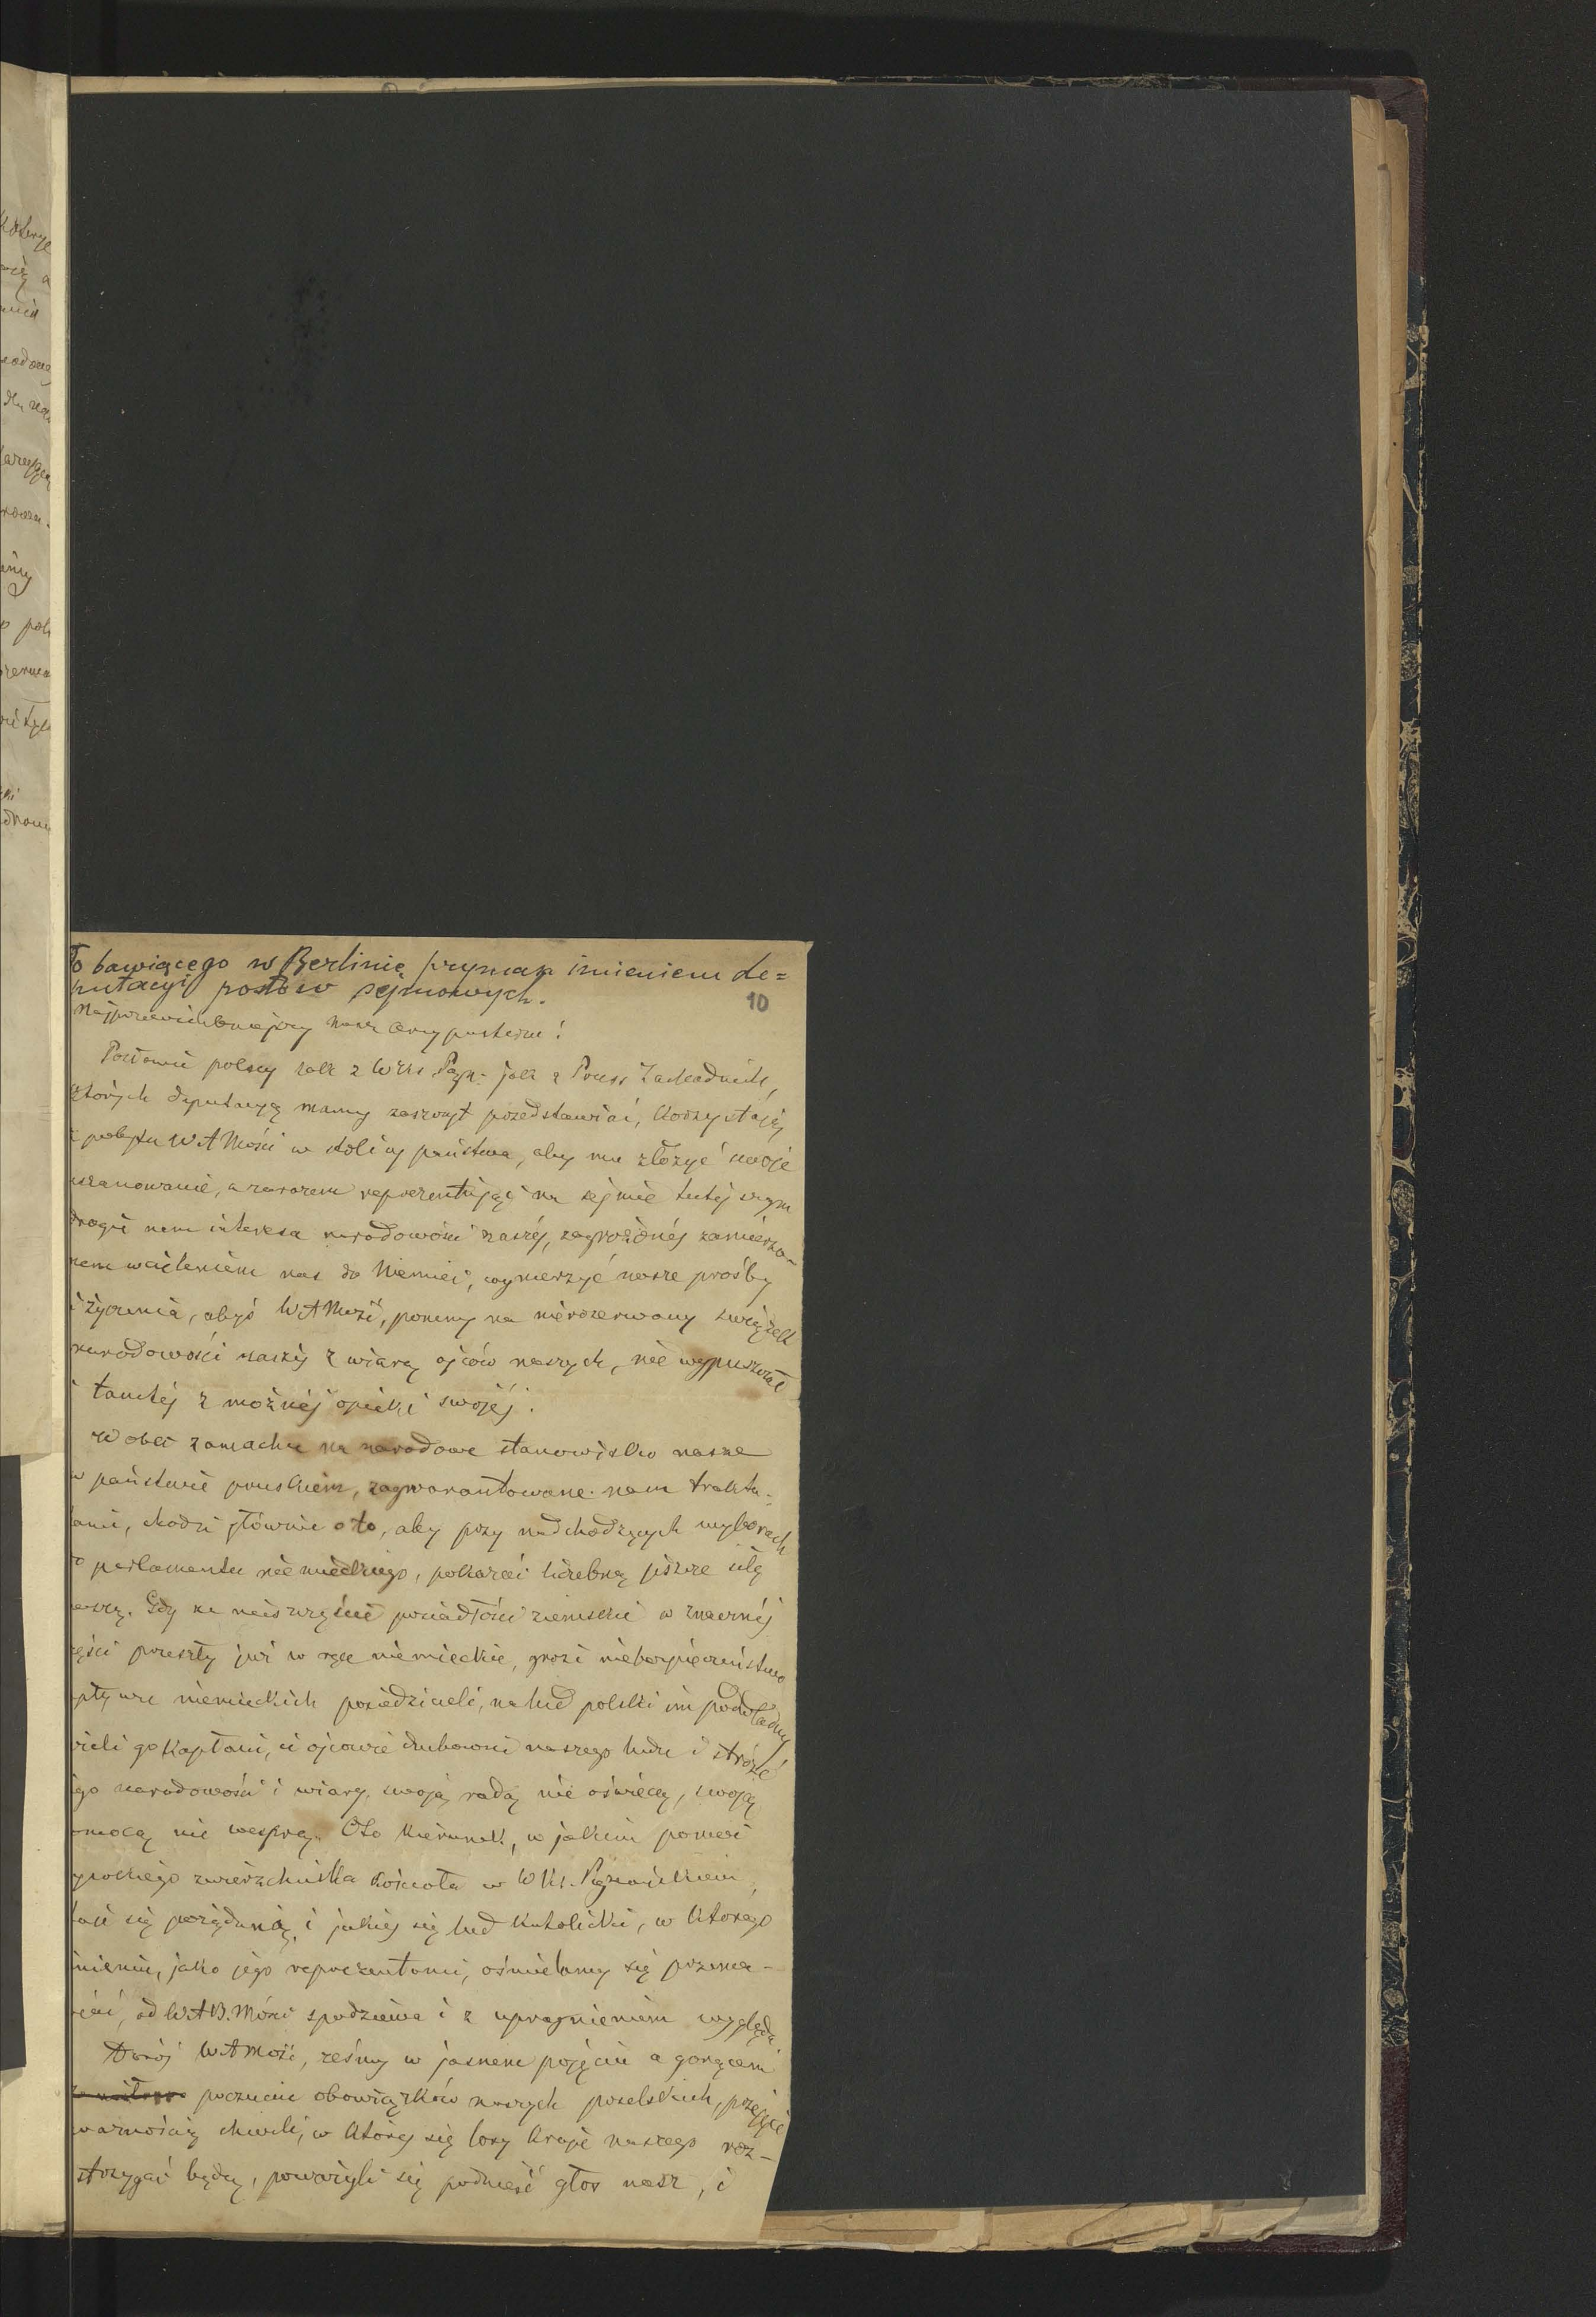 To bawiącego w Berlinie prymasa imieniem de=
putacyi posłów sejmowych.
10
Najprzewielebniejszy nasz Arcypasterzu!
Posłowie polscy tak z W Xs Pozn: jak z Pruss Zachodnich,
których deputacyą mamy zaszczyt przedstawiać, korzystają
z pobytu WAMości w stolicy państwa, aby mu złożyć swoje
uszanowanie, a zarazem reprezentując na sejmie tutejszym
drogie nam interesa narodowości naszéj, zagrożonéj zamierzo-
nem wcieleniem nas do Niemiec, wynurzyć nasze prośby
i życzenia, abyś WAMość, pomny na nierozerwany związek
narodowości naszéj z wiarą ojców naszych, nie wypuszczał
i tamtéj z możnéj opieki swojéj.
Wobec zamachu na narodowe stanowisko nasze
w państwie pruskiem, zagwarantowane nam trakta-
tami, chodzi głównie o to, aby przy nadchodzących wyborach
do parlamentu niemieckiego, pokazać liczebną jeszcze siłę
naszą. Gdy na nieszczęście posiadłości ziemskie w znacznéj
części przeszły już w ręce niemieckie, grozi niebezpieczeństwo
wpływu niemieckich posiedzicieli, na lud polski im podwładny
jeżeli go kapłani, ci ojcowie duchowni naszego ludu i stróże
jego narodowości i wiary, swoją radą nie oświecą, swoją
pomocą nie wesprą. Oto kierunek, w jakim pomoc
wysokiego zwierzchnika kościoła w W Ks. Poznańskiem,
staje się pożądaną, i jakiej się lud katolicki, w którego
imieniu, jako jego reprezentanci, ośmielamy się przema-
wiać, od WAB. Mości spodziewa i z upragnieniem wygląda
WAMość, żeśmy w jasnem pojęciu a gorącem
poczuciu obowiązków naszych poselskich, przejęci
ważnością chwili, w któréj się losy kraju naszego roz-
strzygać będą, poważyli się podnieść głos nasz, i